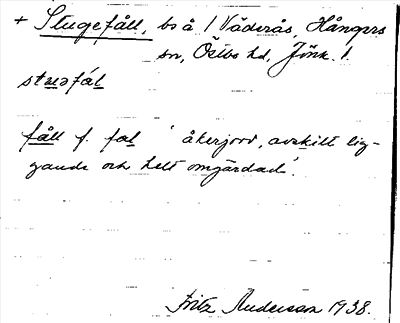 + Stugefåll, bs å 1 Väderås, Hångers
sn, Östbo hd, Jönk. l.
stuəfál
fåll f. fal ' åkerjord, avskilt lig-
gande och helt omgärdad'.
Fritz Anderson 1938.